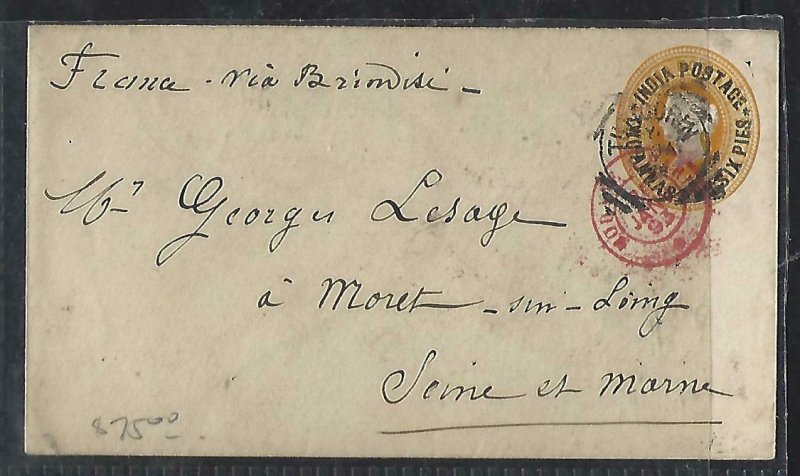 France - via Brindisi -
INDIA POSTAGE
TWO ANNAS SIX PIES
Mr Georges Lesage
à Moret - sur - Loing
Seine et Marne
$7500